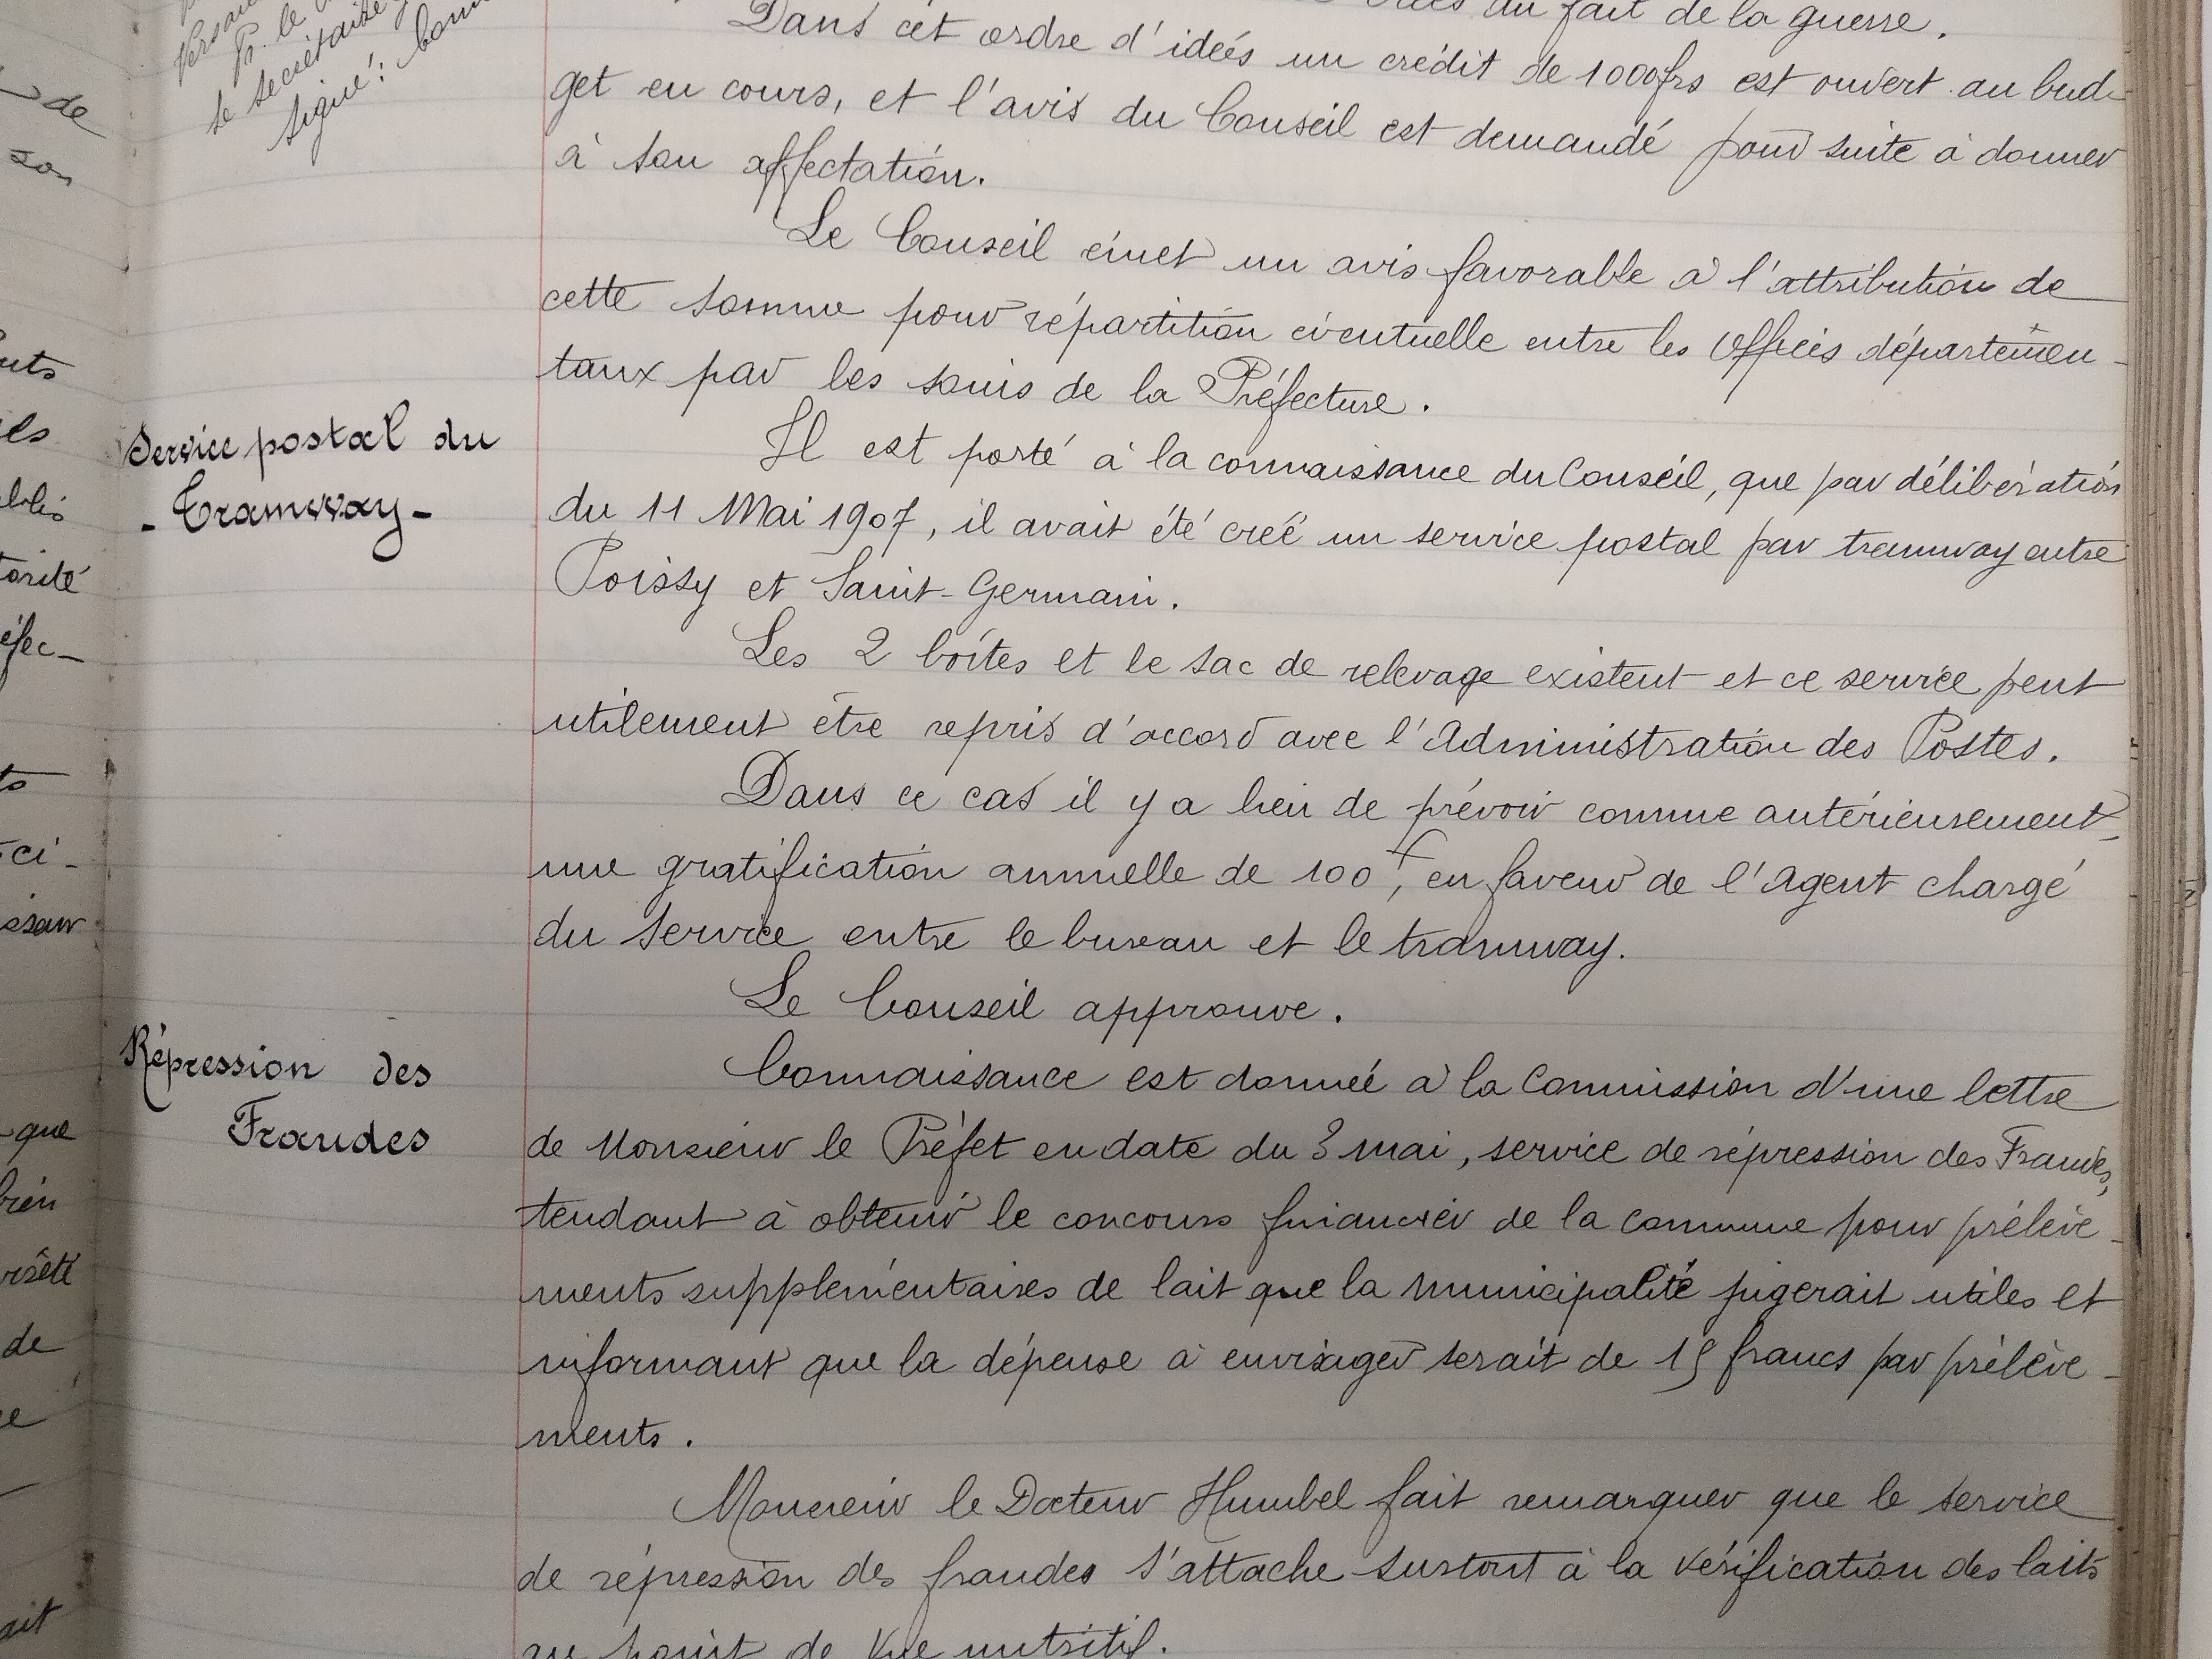 de
son
le secrétaire
signé:
du fait de la guerre.
Dans cet ordre d'idées un crédit de 1000frs est ouvert au bud-
get en cours, et l'avis du Conseil est demandé pour suite à donner
à son affectation.
Le Conseil émet un avis favorable à l'attribution de
cette somme pour répartition éventuelle entre les Offices départemen-
taux par les soins de la Préfecture.
Service postal du
- Tramway -
Il est porté à la connaissance du Conseil, que par délibération
du 11 Mai 1907, il avait été créé un service postal par tramway entre
Poissy et Saint-Germain.
Les 2 boîtes et le sac de relevage existent et ce service peut
utilement être repris d'accord avec l'Administration des Postes.
Dans ce cas il y a lieu de prévoir comme antérieurement,
une gratification annuelle de 100f, en faveur de l'Agent chargé
du service entre le bureau et le tramway.
Le Conseil approuve.
Répression des
Fraudes
Connaissance est donnée à la Commission d'une lettre
de Monsieur le Préfet en date du 3 mai, service de répression des Fraudes,
tendant à obtenir le concours financier de la commune pour prélève-
ments supplémentaires de lait que la municipalité jugerait utiles et
informant que la dépense à envisager serait de 15 francs par prélève-
ments.
Monsieur le Docteur Humbel fait remarquer que le service
de répression des fraudes s'attache surtout à la vérification des laits
au point de vue nutritif.